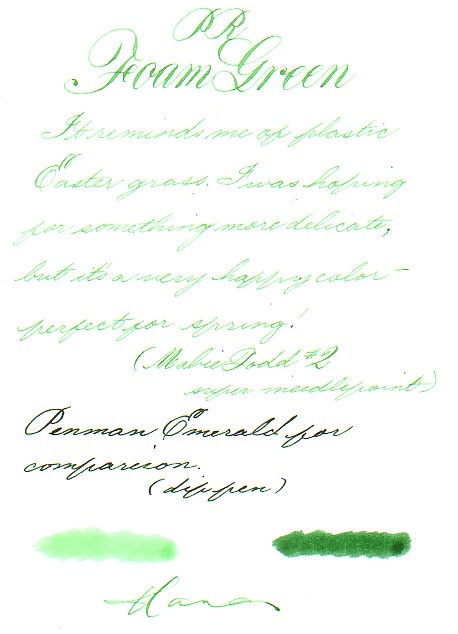 PR
Foam Green
It reminds me of plastic
Easter grass. I was hoping
for something more delicate,
but it's a very happy color -
perfect for spring!
(Mabie Todd #2
super needlepoint)
Penman Emerald for
comparison.
(dip pen)